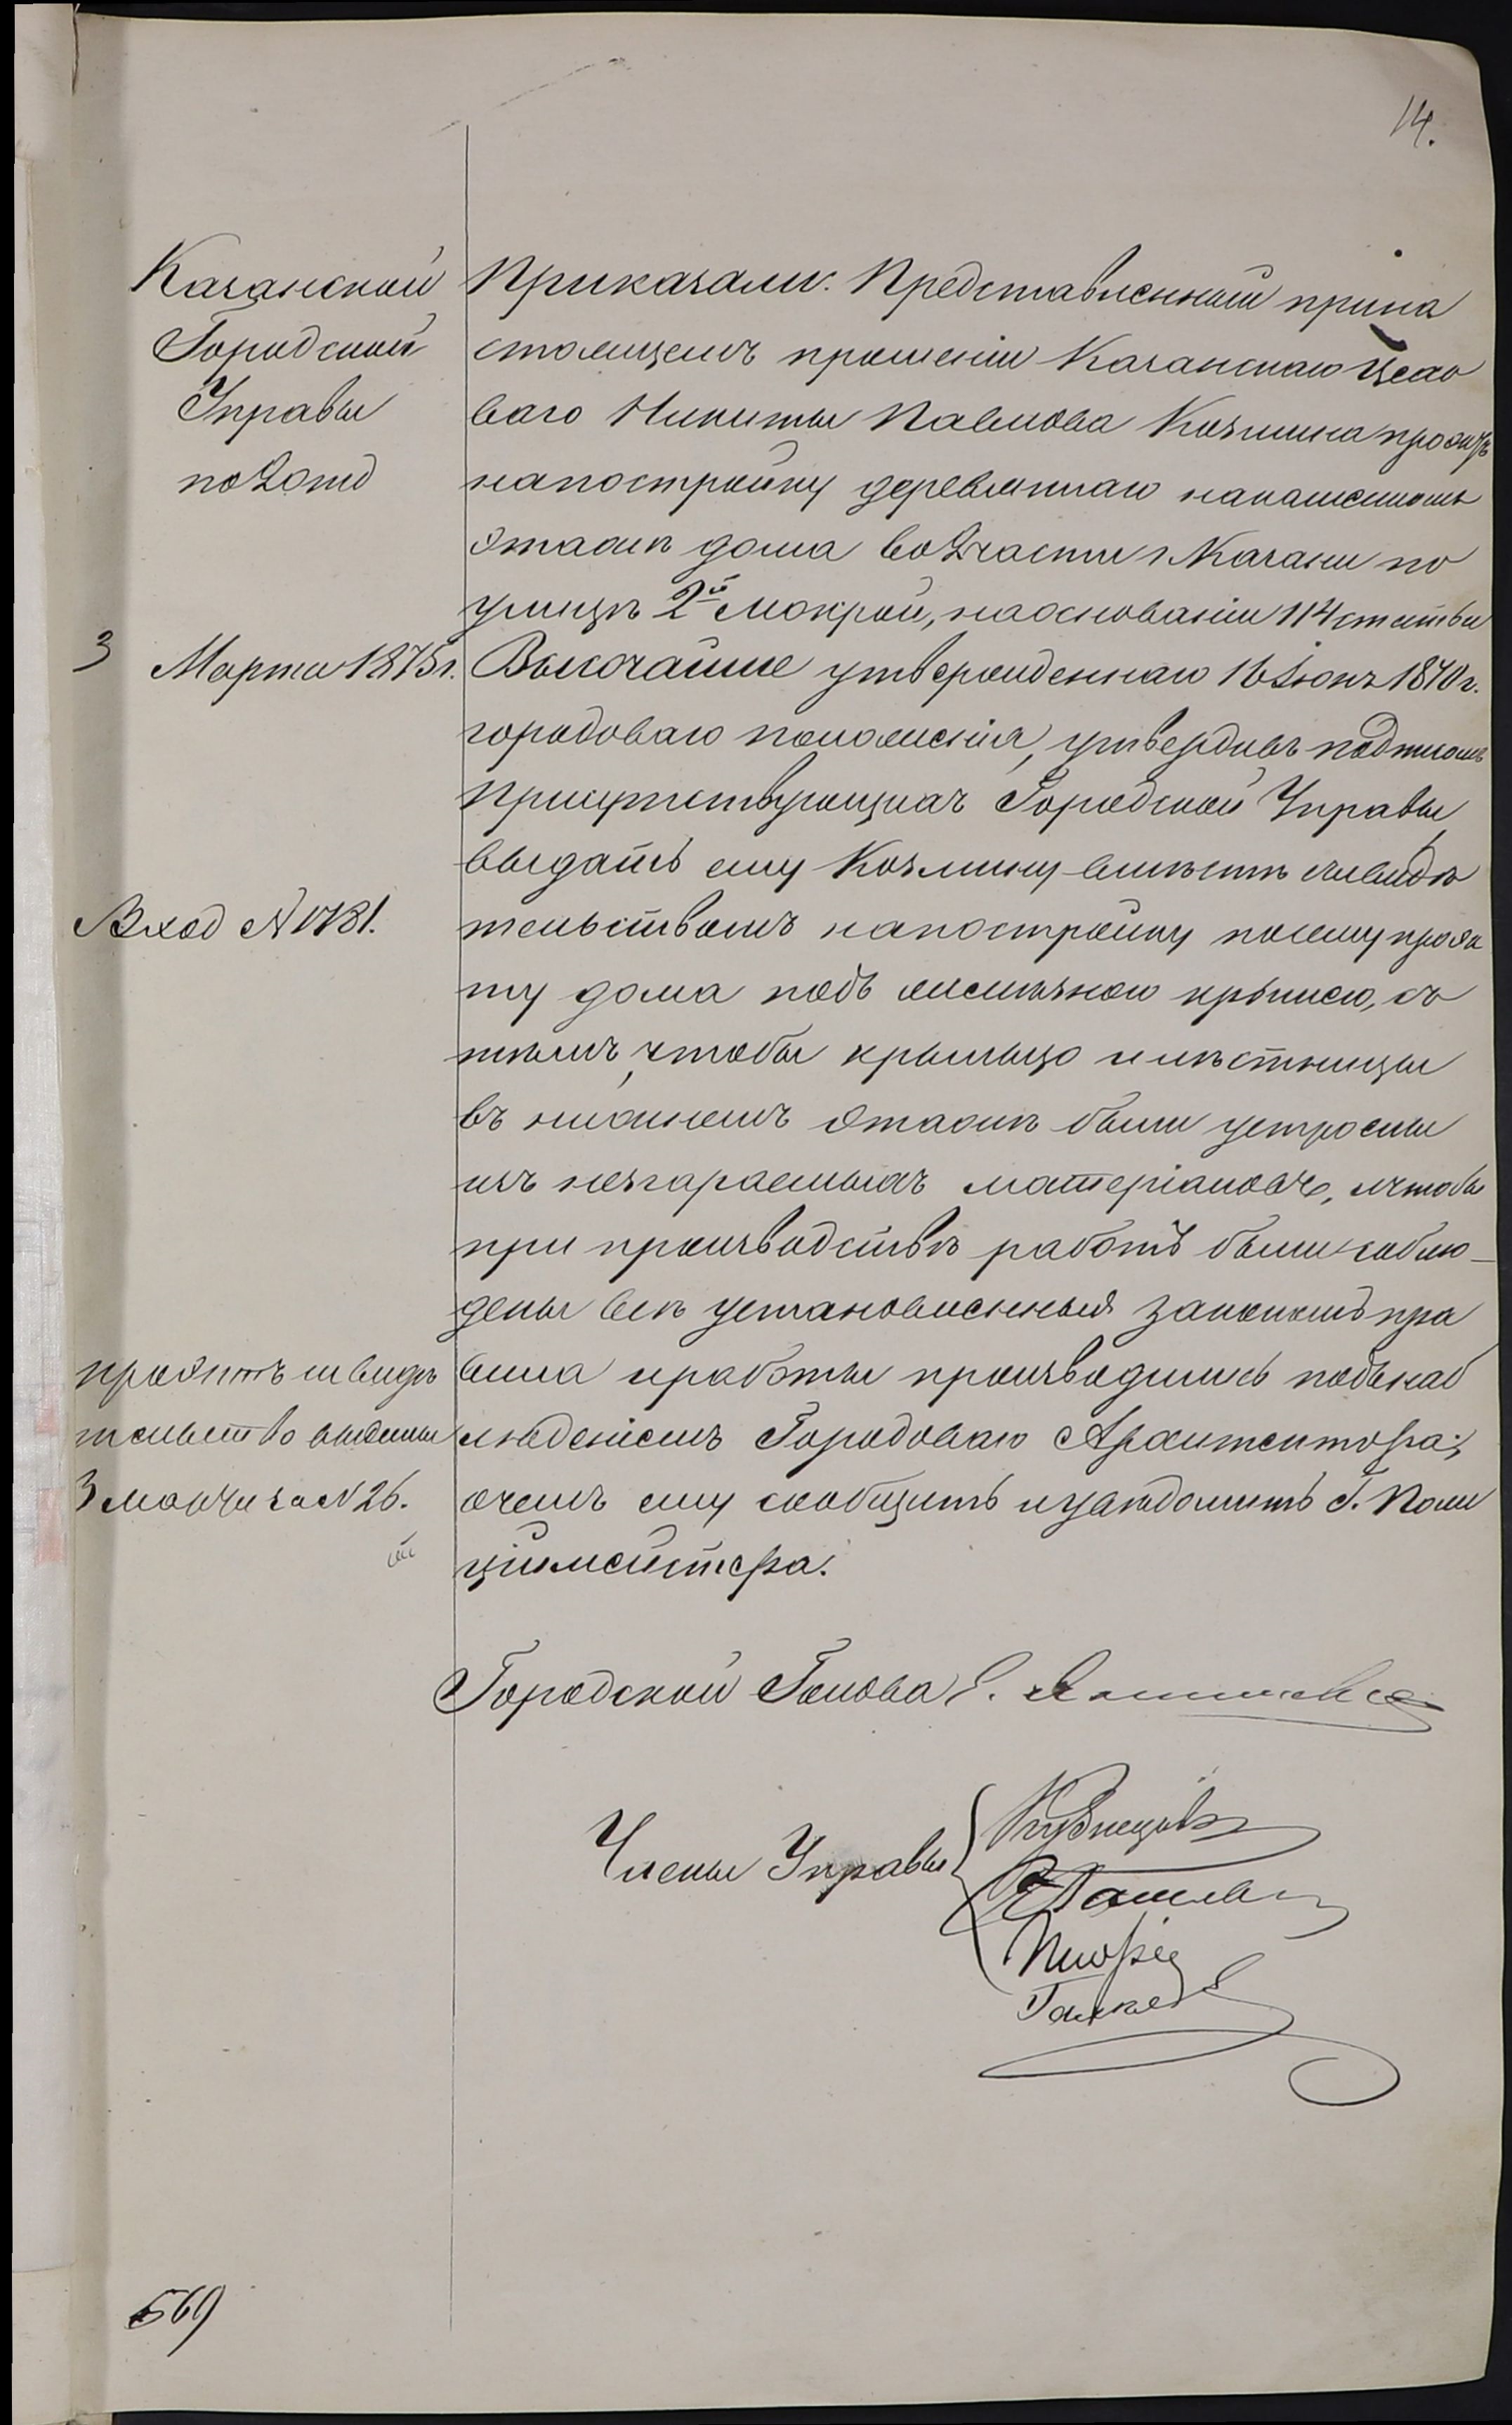 14.
Казанской
Городской
Управы
по 2 отд
3 Марта 1875 г.
Вход № 1781.
проэктъ и свидѣ
тельство выданы
3 марта за № 26.
Приказали: Представленный прина
стоящемъ прошеніи Казанскаго Цехо
ваго Никиты Павлова Козмина проэктъ
напостройку деревяннаго накаменномъ
этажѣ дома во 2 части г. Казани по
улицѣ 2й Мокрой, наоснованіи 114 статьи
Высочайше утвержденнаго 16 Іюня 1870 г.
городоваго положенія, утвердивъ подписомъ
Присутствующихъ Городской Управы,
выдать ему Козмину вмѣстѣ съ свидѣ
тельствомъ напостройку посему проэк
ту дома подъ желѣзною крышею, съ
тѣмъ, чтобы крыльцо и лѣстницы
въ нижнемъ этажѣ были устроены
изъ несгараемыхъ матеріаловъ, и чтобы
при производствѣ работъ были соблю-
дены всѣ установленныя закономъ пра
вила и работы производились подънаб
людениемъ Городоваго Архитектора;
очемъ ему сообщить и увѣдомить Г. Поли
ціймейстера.
Городской Голова Е.
Члены Управы
Кузнецовъ
569